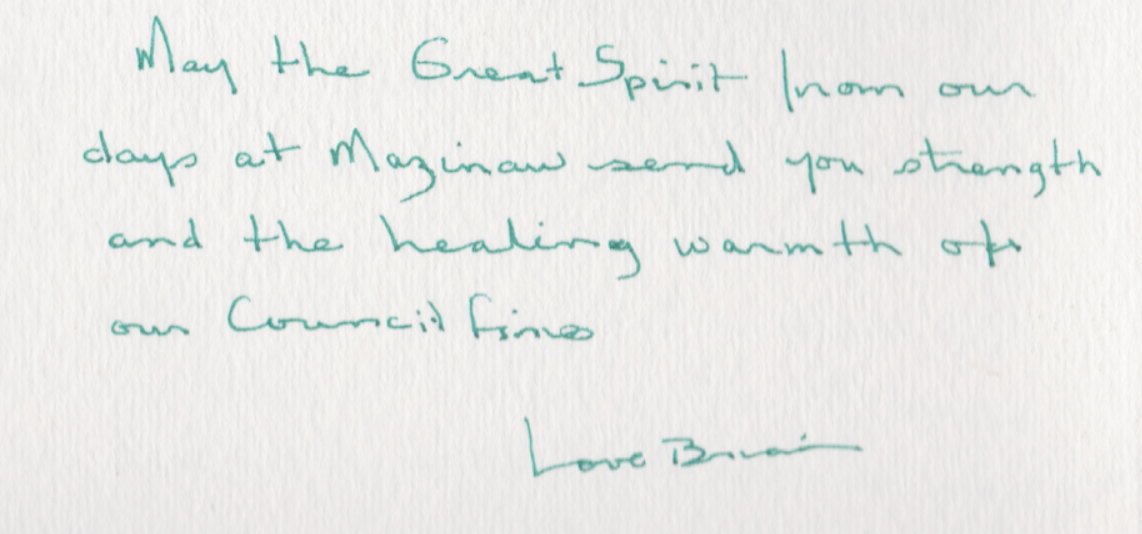 May the Great Spirit from our
days at Mazinaw send you strength
and the healing warmth of
our Council fires
Love Brian